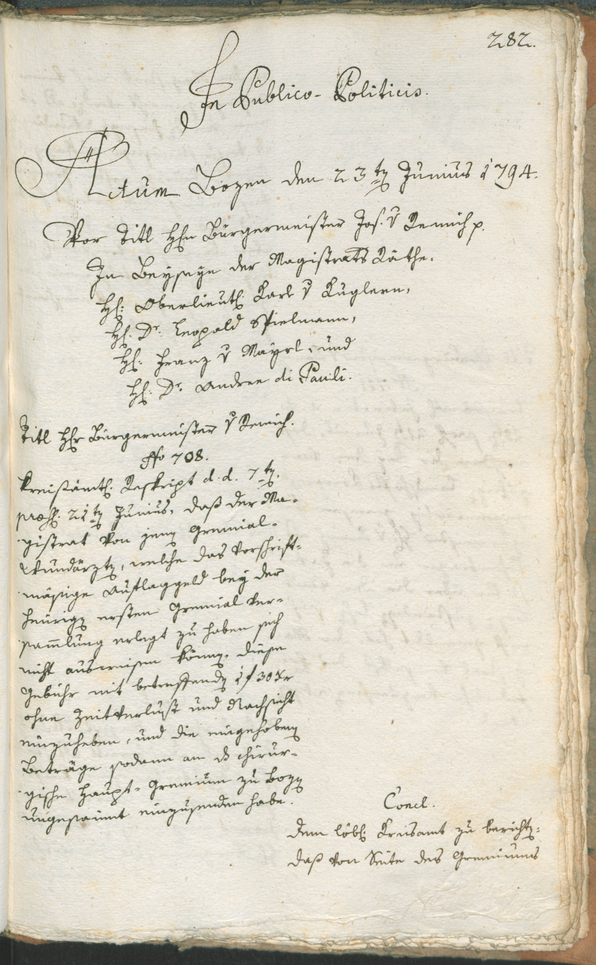 282.
In Publico-Politicis.
Actum Bozen den 23ten Junius 1794.
Vor Titl Hhn Bürgermeister Jos: v Remich p.
In Beyseyn der Magistrats Räthe.
Hh: Oberlieut: Karl v Kuglern,
Hh: Dr. Leopold Spielmann,
Hh: Franz v Mayrl, und
Hh: Dr. Andree di Pauli.
Titl Hhr Bürgermeister v Remich.
No 708.
Kreisämtl Reskript d. d. 7ten
praes. 21ten Junius, daß der Ma-
gistrat von jenen Gremial-
Wundärzten, welche das vorschrift-
mäßige Auflaggeld bey der
heurigen ersten Gremial Ver-
sammlung erlegt zu haben sich
nicht ausweisen können, diese
Gebühr mit betreffenden 1 f 30 Xr
ohne Zeitverlust und Nachsicht
einzuheben, und die eingehobenen
Beträge sodann an das chirur-
gische Haupt-Gremium zu Bozen
ungesäumt einzusenden habe.
Concl.
Dem löbl Kreisamt zu berichten:
daß von Seite des Gremiums